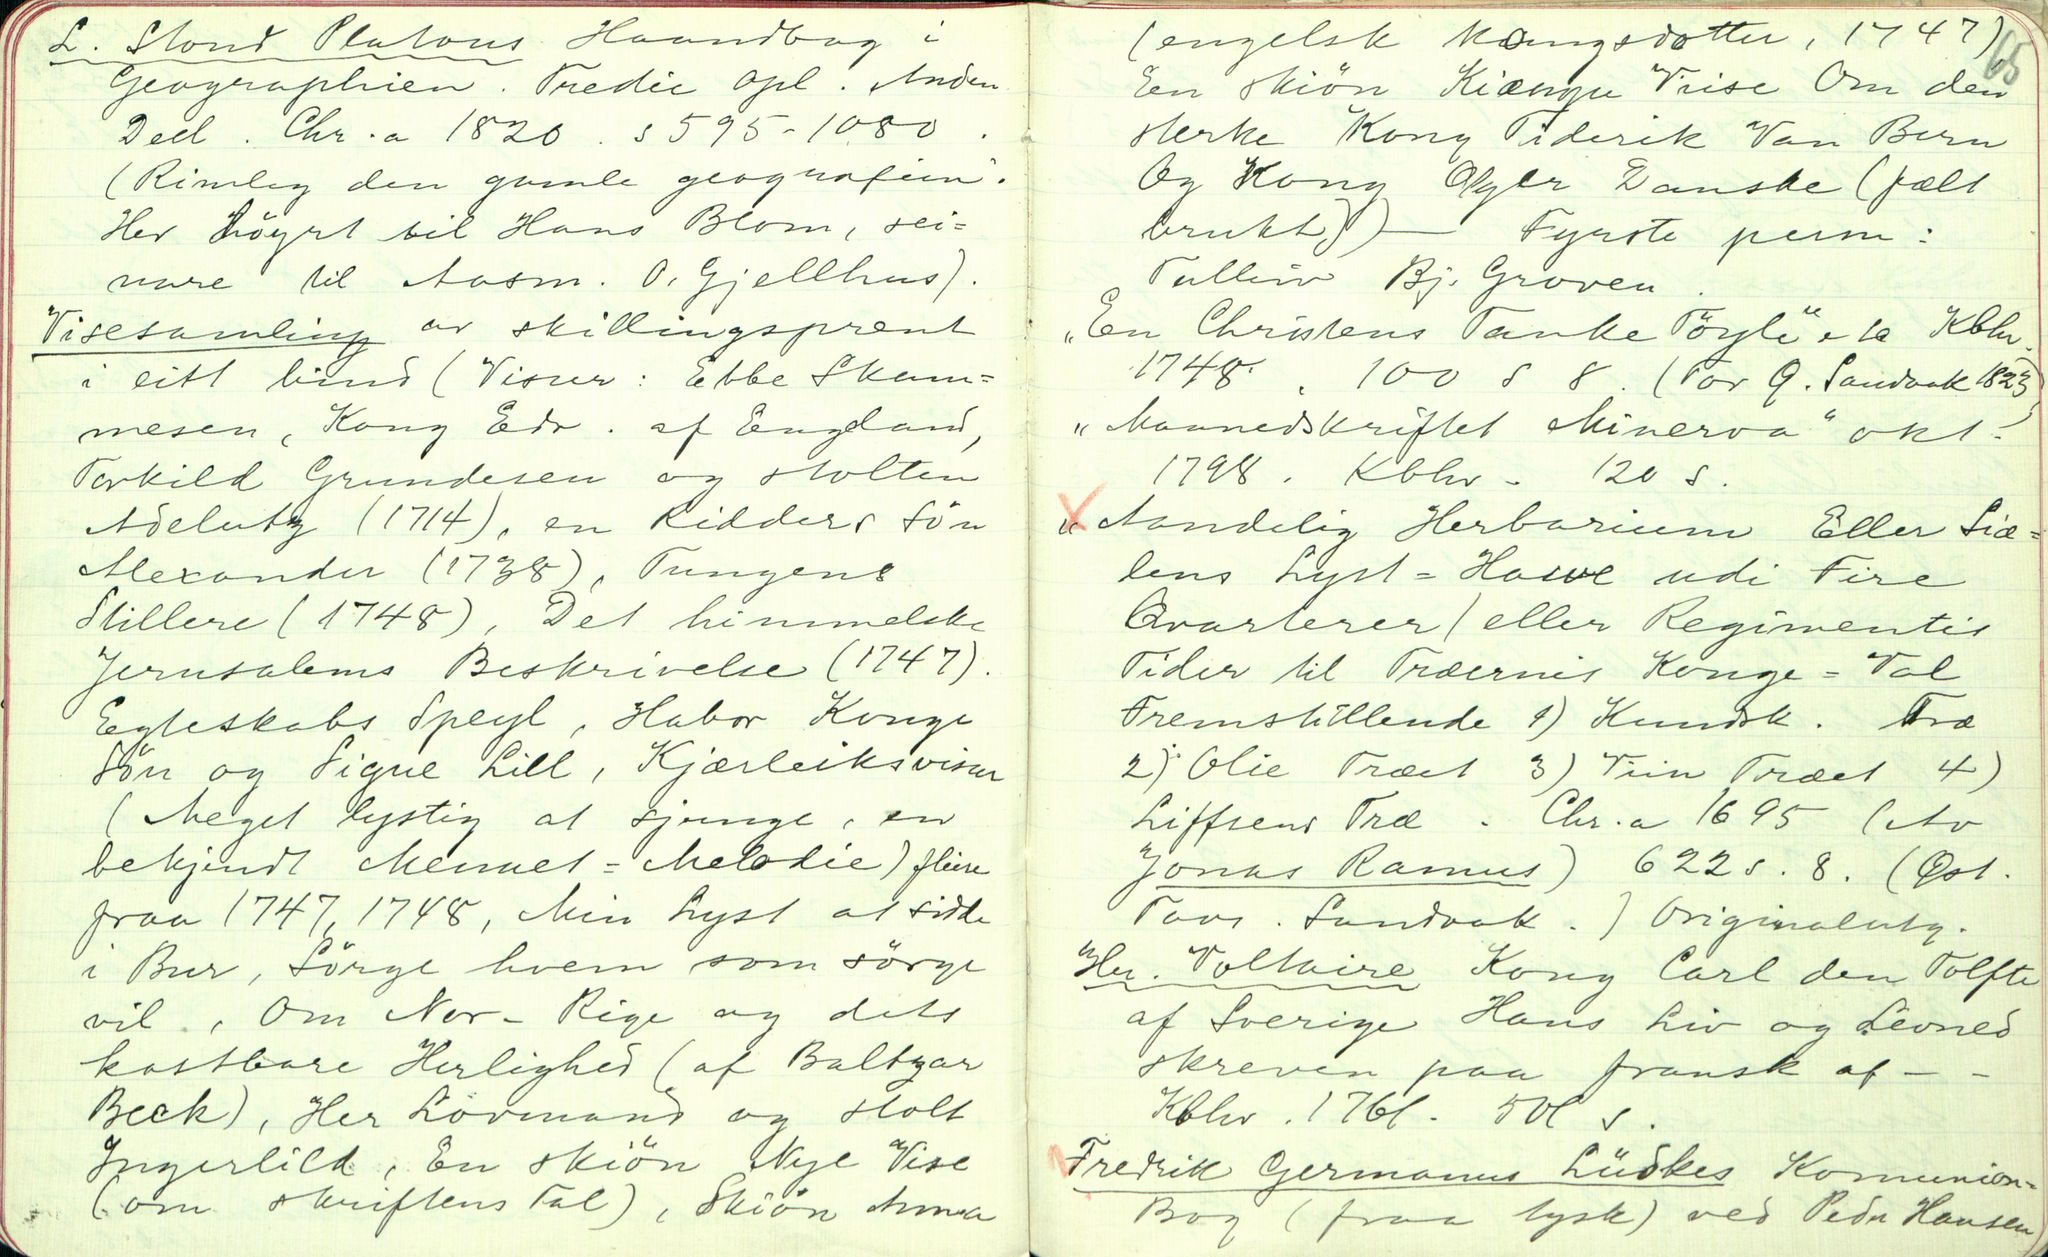 L. Stoud Platous Haandbog i
Geographien. Tredie Opl. Anden
Deel. Chr.a 1820. s 595-1080.
(Rimleg den gamle geografien.
Her höyrt til Hans Blom, sei=
nare til Aasm. O. Gjellhus).
Visesamling av skillingsprent
i eitt bind (Visur: Ebbe Skam=
mesen, Kong Edv. af England,
Torkild Grundesen og stolten
Adelutz (1714), en Ridders Sön
Alexander (1738), Tungens
Stillere (1748), Det himmelske
Jerusalems Beskrivelse (1747).
Egteskabs Speyl, Habor Konge
Sön og Signe Lill, Kjærleiksvisur
(Meget lystig at sjunge, en
bekjendt Menuet=Melodie) fleire
fraa 1747, 1748, Min Lyst at sidde
i Bur, Sörge hvem som sörge
vil, Om Nor-Rige og dets
kostbare Herlighed (af Baltzar
Beck), Her Lövmand og stolt
Ingerlild, En skiön Nye Vise
(om skriftens Tal), Skiön Anna
65
(engelsk Kongsdotter, 1747),
En skiön Kiæmpe Viise Om den
sterke Kong Tiderik Van Bern
Og Kong Olger Danske (fælt
brukt)) — Fyrste perm:
Talleiv Bj. Groven.
"En Christens Tanke Töyle" etc Kbhv.
1748. 100 s 8. (Tor G. Sandvak 1823)
"Maanedskriftet Minerva" okt.
1798. Kbhv. 120 s.
X "Aandelig Herbarium Eller Siæ=
lens Lyst=Hawe udi Fire
Qvarterer / eller Regimentis
Tider til Træernis Konge=Val
Fremstillende 1) Kundsk. Træ
2) Olie Træet 3) Viin Træet 4)
Liffsens Træ. Chr.a 1695 (Av
Jonas Ramus) 622 s. 8. (Øst.
Tovs. Sandvak.) Originalutg.
Hr. Voltaire Kong Carl den Tolfte
af Sverige Hans Liv og Levned
skreven paa fransk af - -
Kbhv. 1761. 501 s.
Fredrik Germanus Lüdkes Komunion=
Bog (fraa tysk) ved Peder Hansen